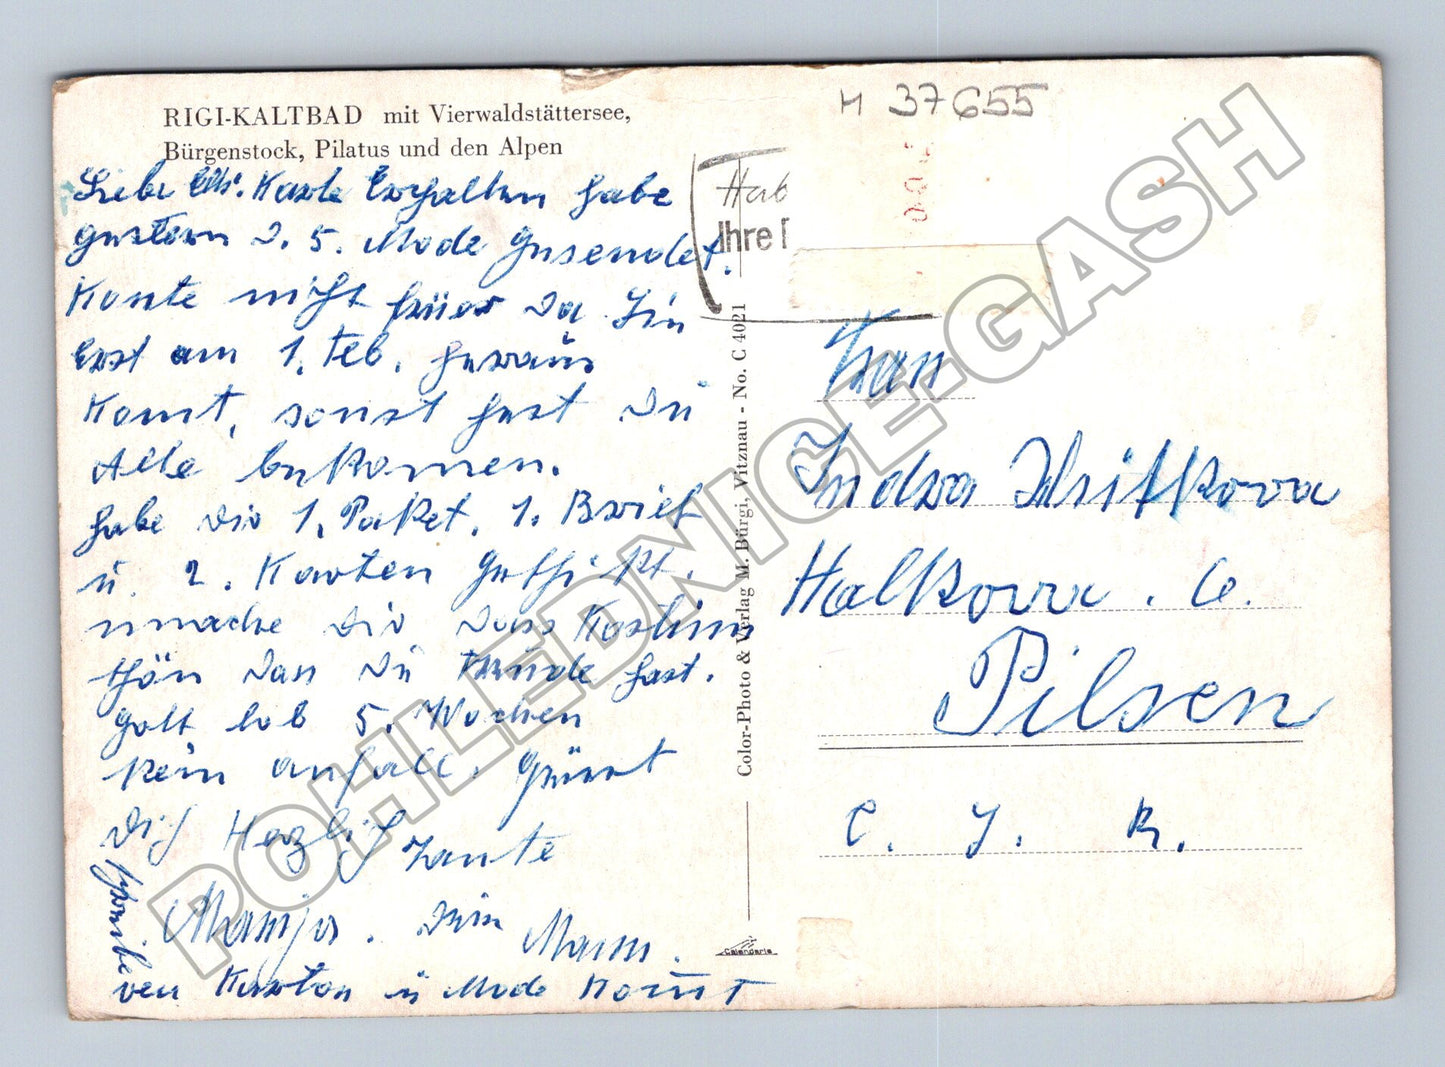 RIGI-KALTBAD mit Vierwaldstättersee,
Bürgenstock, Pilatus und den Alpen
Liebe Karte Erhalten habe
gestern 2. 5. Mode Gesendet.
Konte nicht früer da Sin
Erst am 1. Feb. heraus
Komt, sonst hest Du
Alle bekomen.
habe dir 1. Paket, 1. Brief
u. 2. Karten geschikt.
mache dir dass Kostüm
schön dan Du freude hast.
Gott lob 5. Wochen
kein anfall. Grüsst
Dich Herzlich tante
Manja. dein Mann.
schreibe
ven Karton u Mode Komt
Color-Photo & Verlag M. Bürgi, Vitznau - No. C 4021
Calendaria
M 37655
Hab
Ihre
Frau
Indra
Halkova. 6.
Pilsen
C. S. R.
POHLEDNICE-GASH